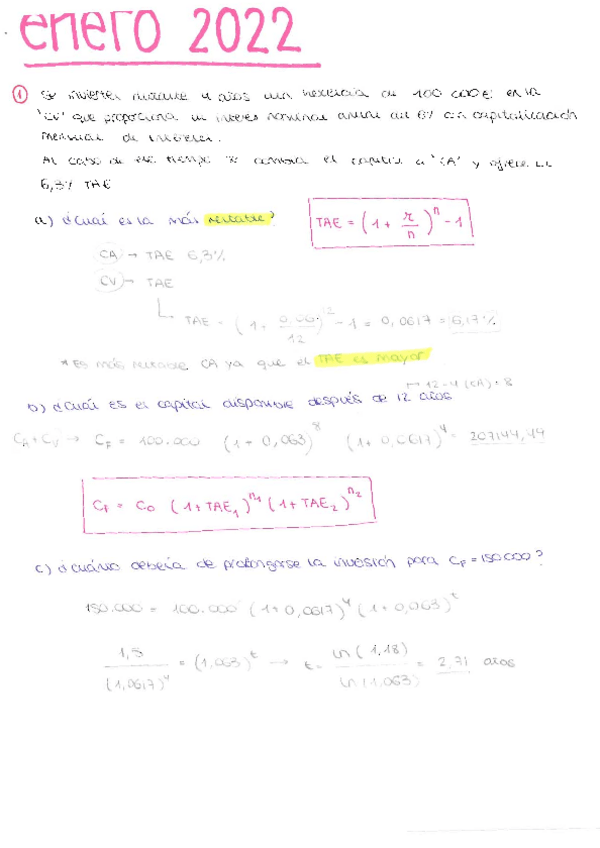 enero 2022
① Se invierten durante 4 años una herencia de 100 000 € en la
"CV" que proporciona un interés nominal anual del 6% con capitalización
mensual de intereses.
Al cabo de ese tiempo se cambia el capital a "CA" y ofrece un
6,3% TAE
a) ¿Cuál es la más rentable?
TAE = (1 + r/n)^n - 1
CA → TAE 6,3%
CV → TAE
TAE = (1 + 0,06/12)^12 - 1 = 0,0617 = 6,17%
* Es más rentable CA ya que el TAE es mayor
↦ 12 - 4 (CA) = 8
b) ¿Cuál es el capital disponible después de 12 años
CA + CV → CF = 100.000 (1 + 0,063)^8 (1 + 0,0617)^4 = 207144,44
CF = C0 (1 + TAE1)^n1 (1 + TAE2)^n2
c) ¿Cuánto debería de prolongarse la inversión para CF = 150000?
150.000 = 100.000 (1 + 0,0617)^4 (1 + 0,063)^t
1,5/(1,0617)^4 = (1,063)^t → t = ln(1,18)/ln(1,063) = 2,71 años